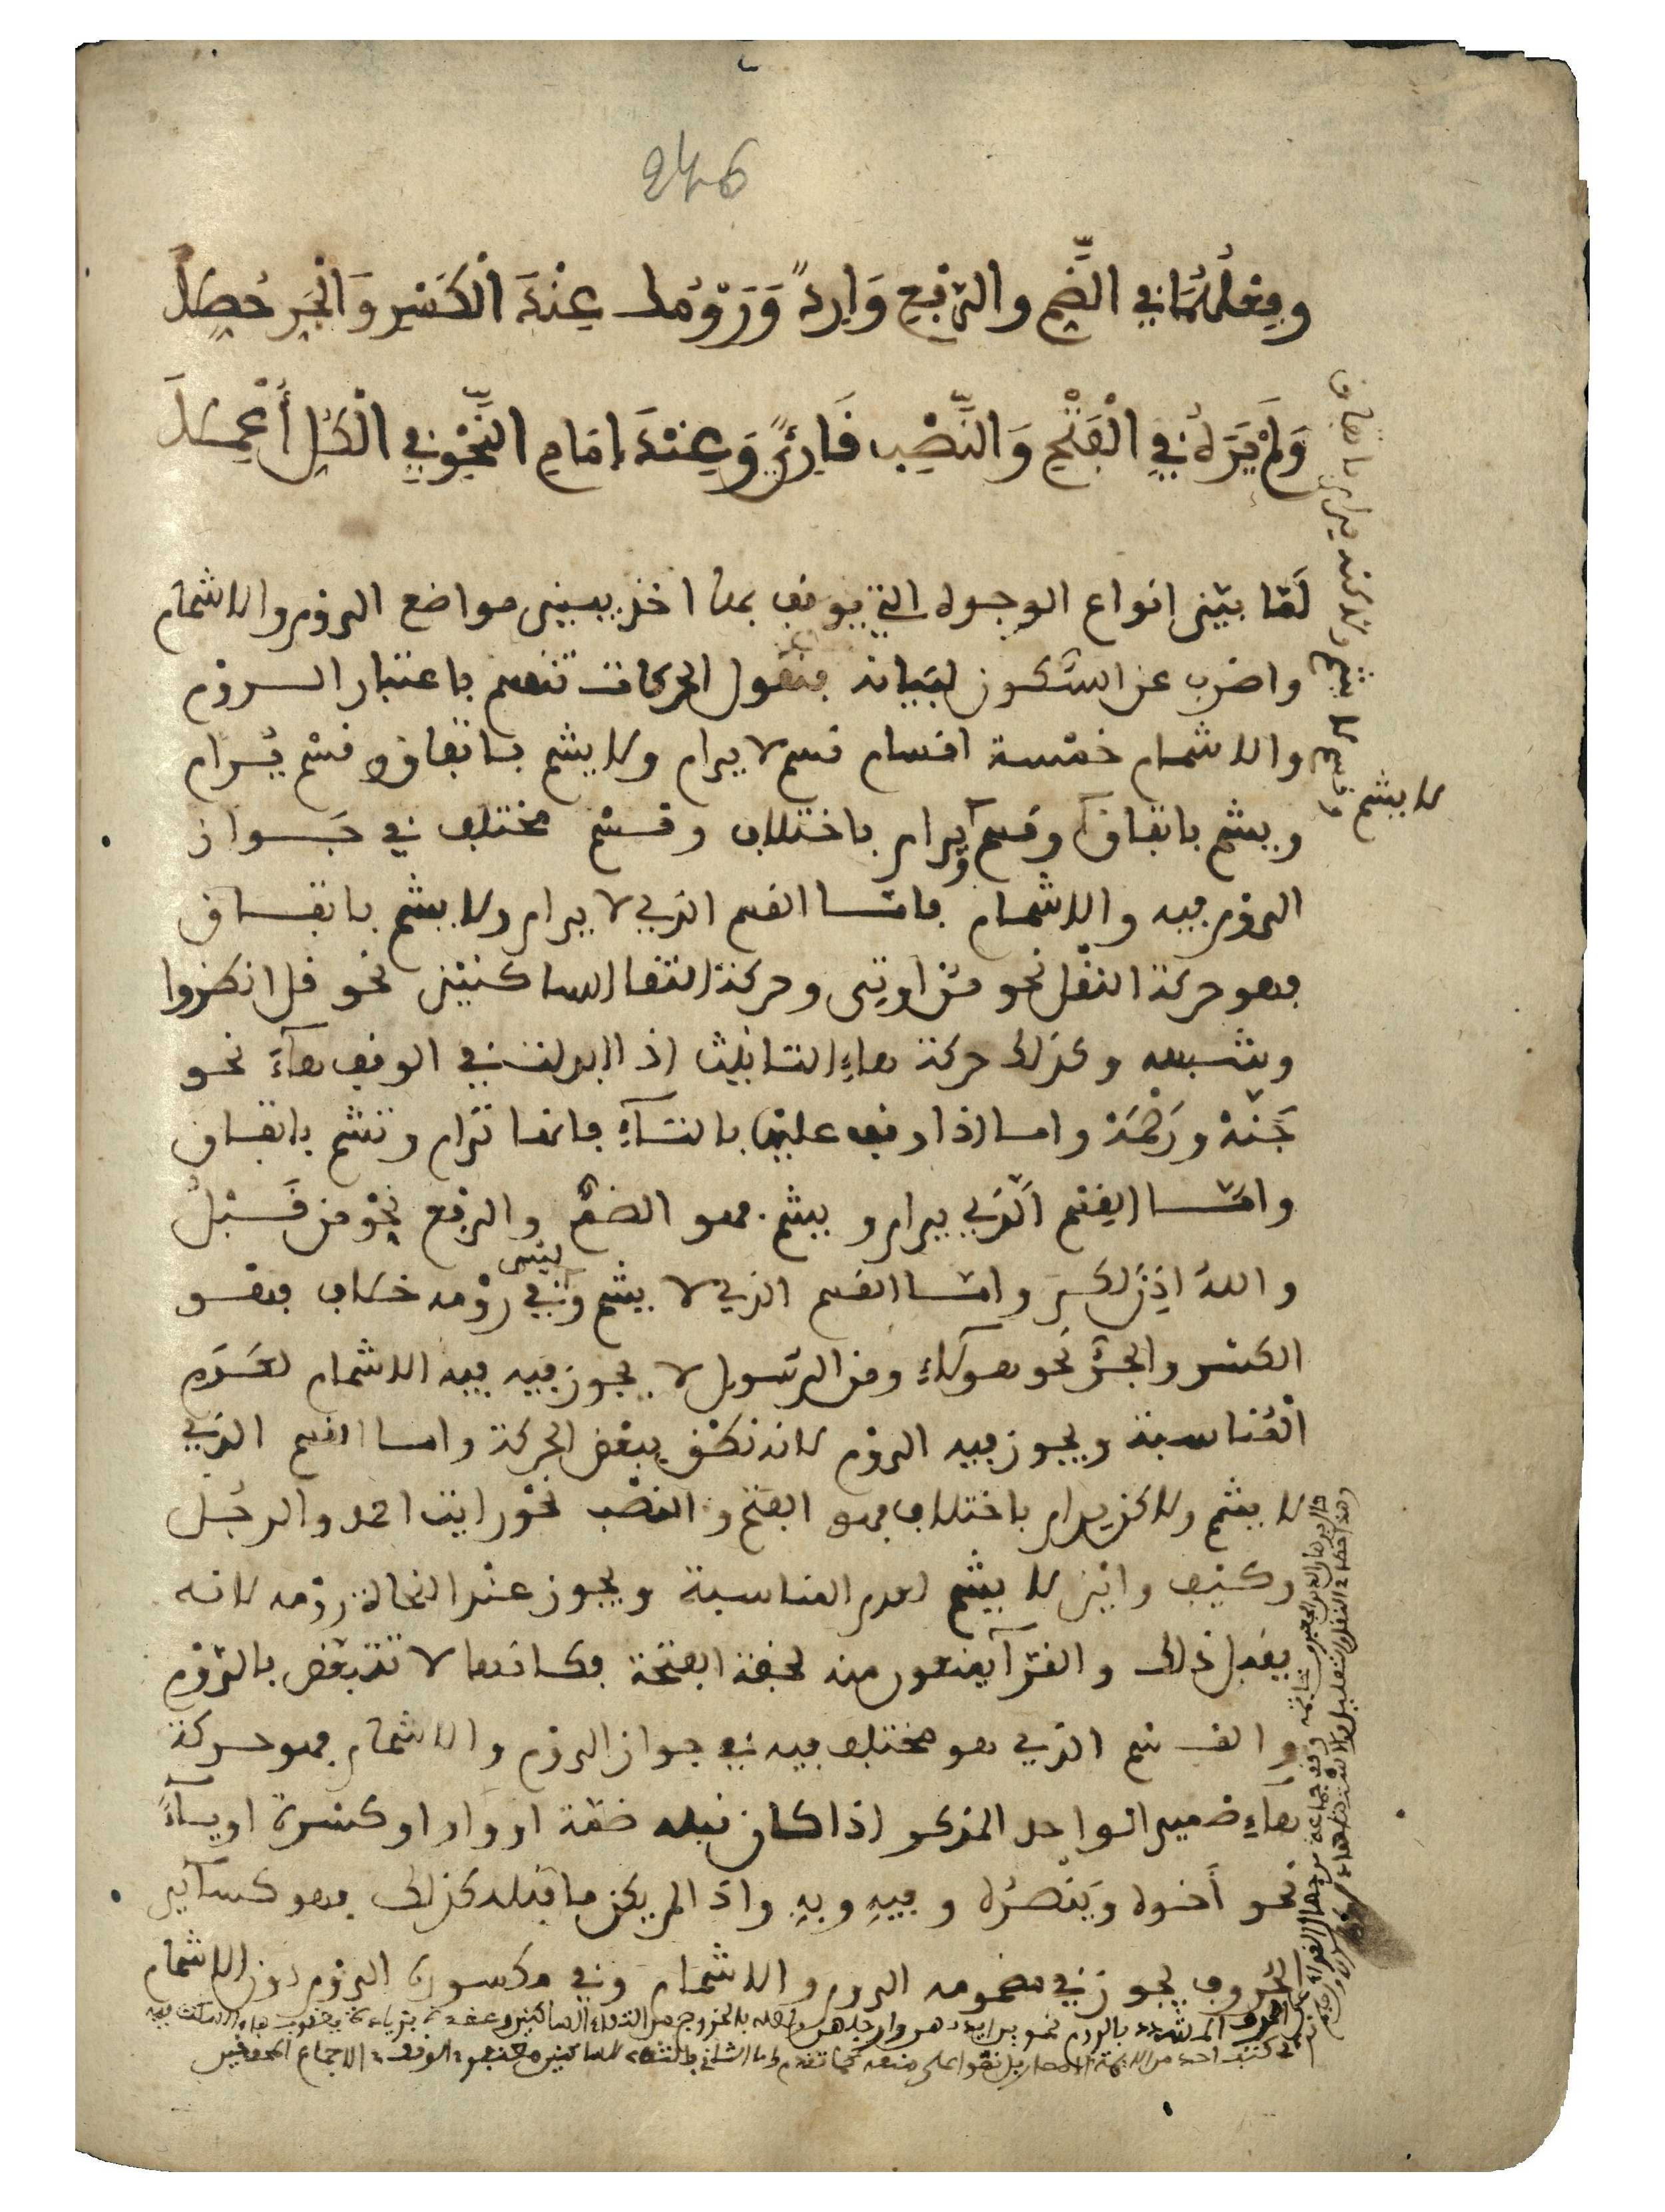 246
وفعلهما في الضم والرفع وارد ورومك عند الكسر والجر وصلا
ولم يره في الفتح والنصب قارئ وعند إمام النحو في الكل أعملا
لما بين انواع الوجوه التي يوقف بها اخذ يبين مواضع الروم والاشمام
واضرب عن السكون لبيانه فنقول الحركات تنقسم باعتبار الروم
والاشمام خمسة اقسام قسم لا يرام ولا يشم باتفاق وقسم يرام
ويشم باتفاق وقسم يرام باختلاف وقسم مختلف في جواز
لا يشم
الروم فيه والاشمام فاما القسم الذي لا يرام ولا يشم باتفاق
فهو حركة النقل نحو من اوتي وحركة التقا الساكنين نحو قل انظروا
وشبهه وكذلك حركة هاء التانيث اذا ابدلت في الوقف هاء نحو
جنة ورحمة واما اذا وقف عليها بالتاء فانها ترام وتشم باتفاق
واما القسم الذي يرام ويشم فهو الضم والرفع نحو من قبل
والله اذن لكم واما القسم الذي لا يشم وفي رومه خلاف فهو
الكسر والجر نحو هولاء ومن الرسول لا يجوز فيه فيه الاشمام لعدم
المناسبة ويجوز فيه الروم لانه نطق ببعض الحركة واما القسم الذي
لا يشم ولاكن يرام باختلاف فهو الفتح والنصب نحو رايت احمد والرجل
وكيف واين لا يشم لعدم المناسبة ويجوز عند النحاة رومه لانه
يقبل ذلك والقرآ يمنعون منه لخفة الفتحة فكانها لا تتبعض بالروم
والقسم الذي هو مختلف فيه في جواز الروم والاشمام فهو حركة
هاء ضمير الواحد المذكر اذا كان قبله ضمة او واو او كسرة او ياء
نحو أخوه وينصره وفيه وبه واذا لم يكن ما قبله كذلك فهو كساير
الحروف يجوز في مضمومه الروم والاشمام وفي مكسوره الروم دون الاشمام